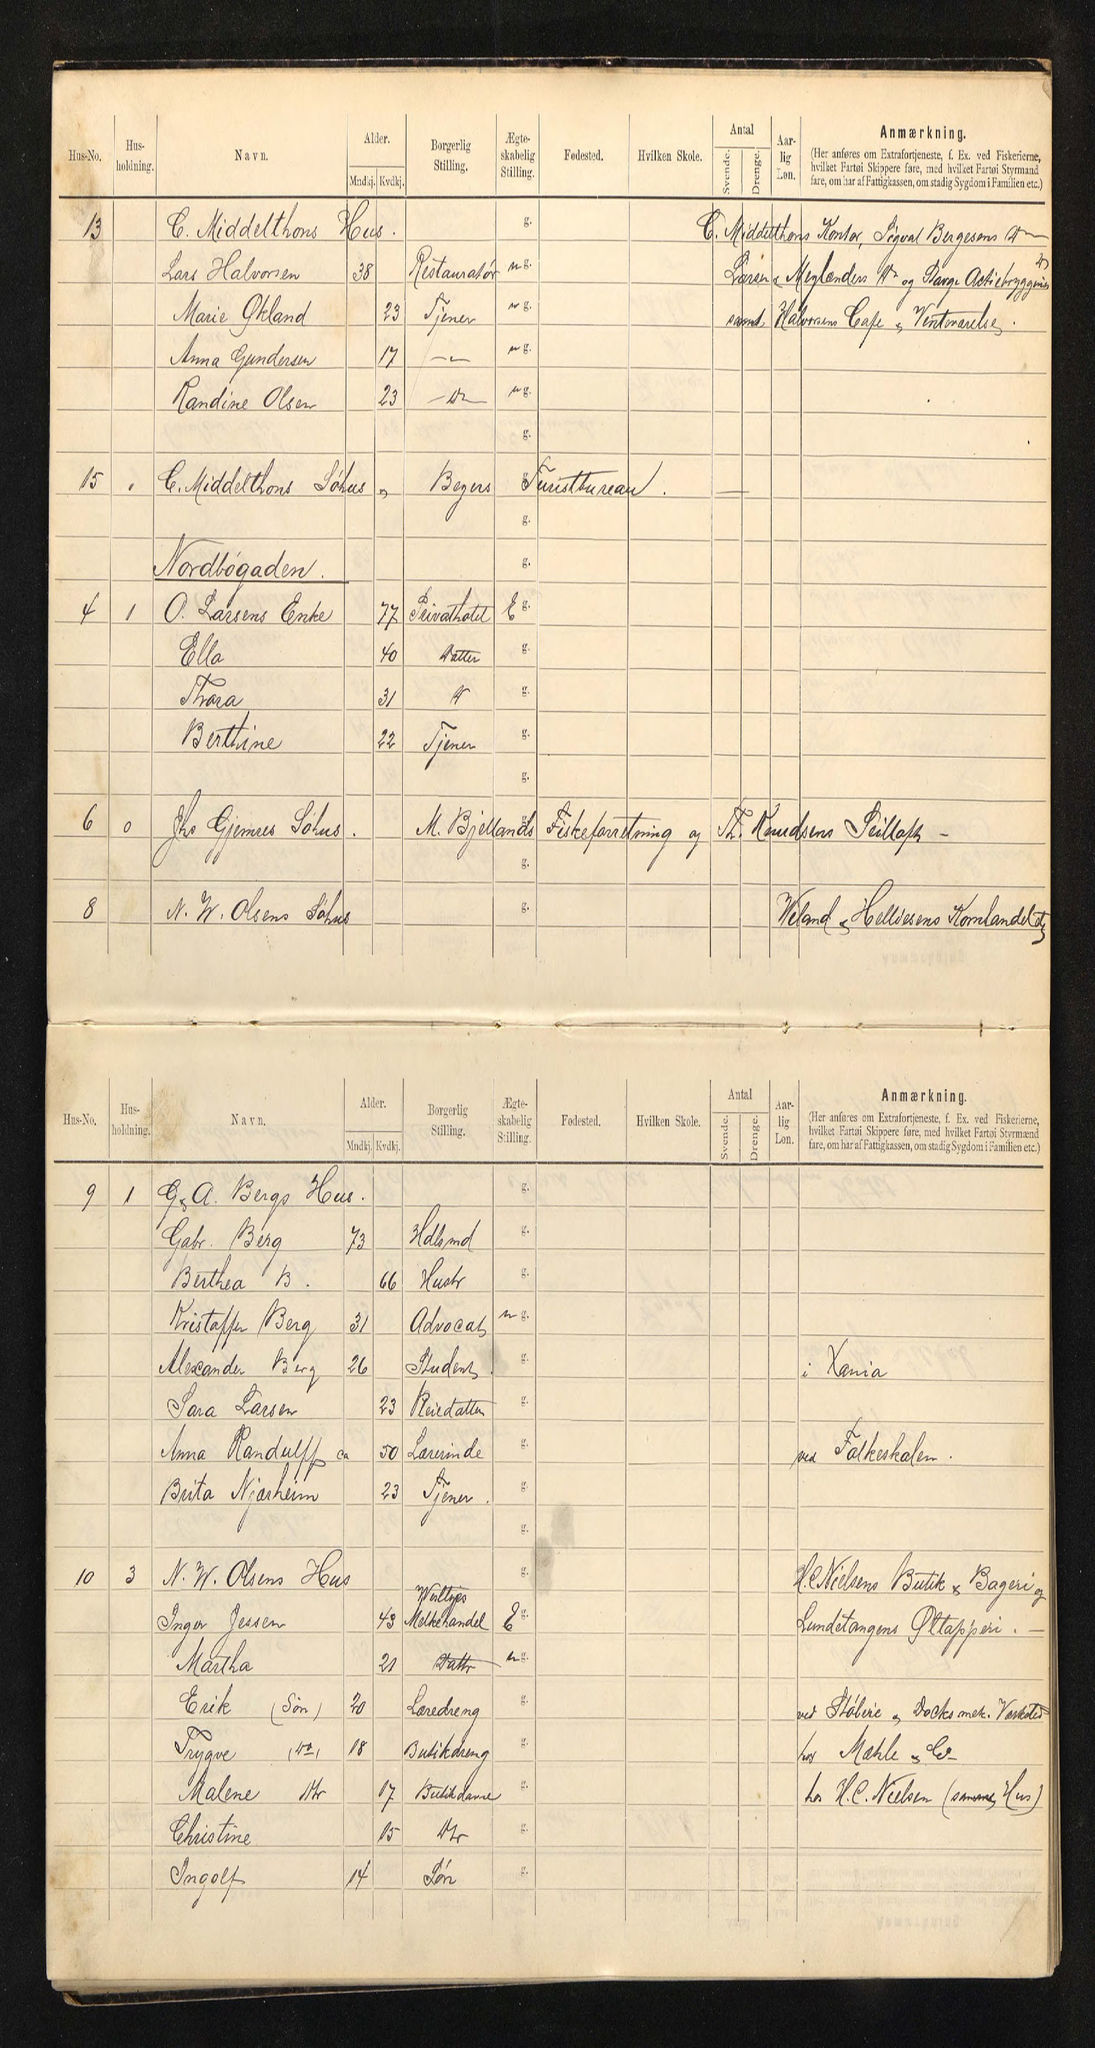 Hus-No. Hus-holdning. Navn. Alder. Mndkj. Kvdkj. Borgerlig Stilling. Ægte-skabelig Stilling. Fødested. Hvilken Skole. Antal Svende. Drenge. Aar-lig Løn. Anmærkning.
(Her anføres om Extrafortjeneste, f. Ex. ved Fiskerierne, hvilket Fartøi Skippere føre, med hvilket Fartøi Styrmænd fare, om har af Fattigkassen, om stadig Sygdom i Familien etc.)
13 C. Middelthons Hus. g. C. Middelthons Kontor, Sigval Bergesens
Lars Halvorsen 38 Restauratør u g. Larsen & Meglænders og Stavgr Actiebryggeries
Marie Økland 23 Tjener u g. samt Halvorsens Cafe & Venteværelse.
Anna Gundersen 17 —"— u g.
Randine Olsen 23 —Do— u g.
g.
15 " C. Middelthons Søhus, Beyers g. Turistbureau. —
g.
Nordbøgaden. g.
4 1 O. Larsens Enke 77 Privathotel E g.
Ella 40 Datter g.
Thora 31 D g.
Berthine 22 Tjener g.
g.
6 0 Jhs Gjemres Søhus. M. Bjellands g. Fiskeforretning og Th. Knudsens
g.
8 N. W. Olsens Søhus g. Weland & Helliesens Kornhandel
Hus-No. Hus-holdning. Navn. Alder. Mndkj. Kvdkj. Borgerlig Stilling. Ægte-skabelig Stilling. Fødested. Hvilken Skole. Antal Svende. Drenge. Aar-lig Løn. Anmærkning.
(Her anføres om Extrafortjeneste, f. Ex. ved Fiskerierne, hvilket Fartøi Skippere føre, med hvilket Fartøi Styrmænd fare, om har af Fattigkassen, om stadig Sygdom i Familien etc.)
9 1 G. A. Bergs Hus. g.
Gabr. Berg 73 Hdlsmd g.
Berthea B. 66 Hustr g.
Kristoffer Berg 31 Advocat u g.
Alexander Berg 26 Student. g. i Xania
Sara Larsen 23 Pleiedatter g.
Anna Randulff ca 50 Lærerinde g. ved Folkeskolen.
Brita Njærheim 23 Tjener. g.
g.
10 3 N. W. Olsens Hus g. H. C. Nielsens Butik & Bageri og
Inger Jessen 43 Melkehandel E g. Lundetangens Øltapperi. —
Martha 21 Dattr u g.
Erik (Søn) 20 Læredreng g. ved Støberie & Docks mek. Værksted
Trygve (Do) 18 Butikdreng g. hos Mæhle & Co
Malene Dtr 17 Butikdame g. hos H. C. Nielsen (samme Hus)
Christine 15 Dtr g.
Ingolf 14 Søn g.